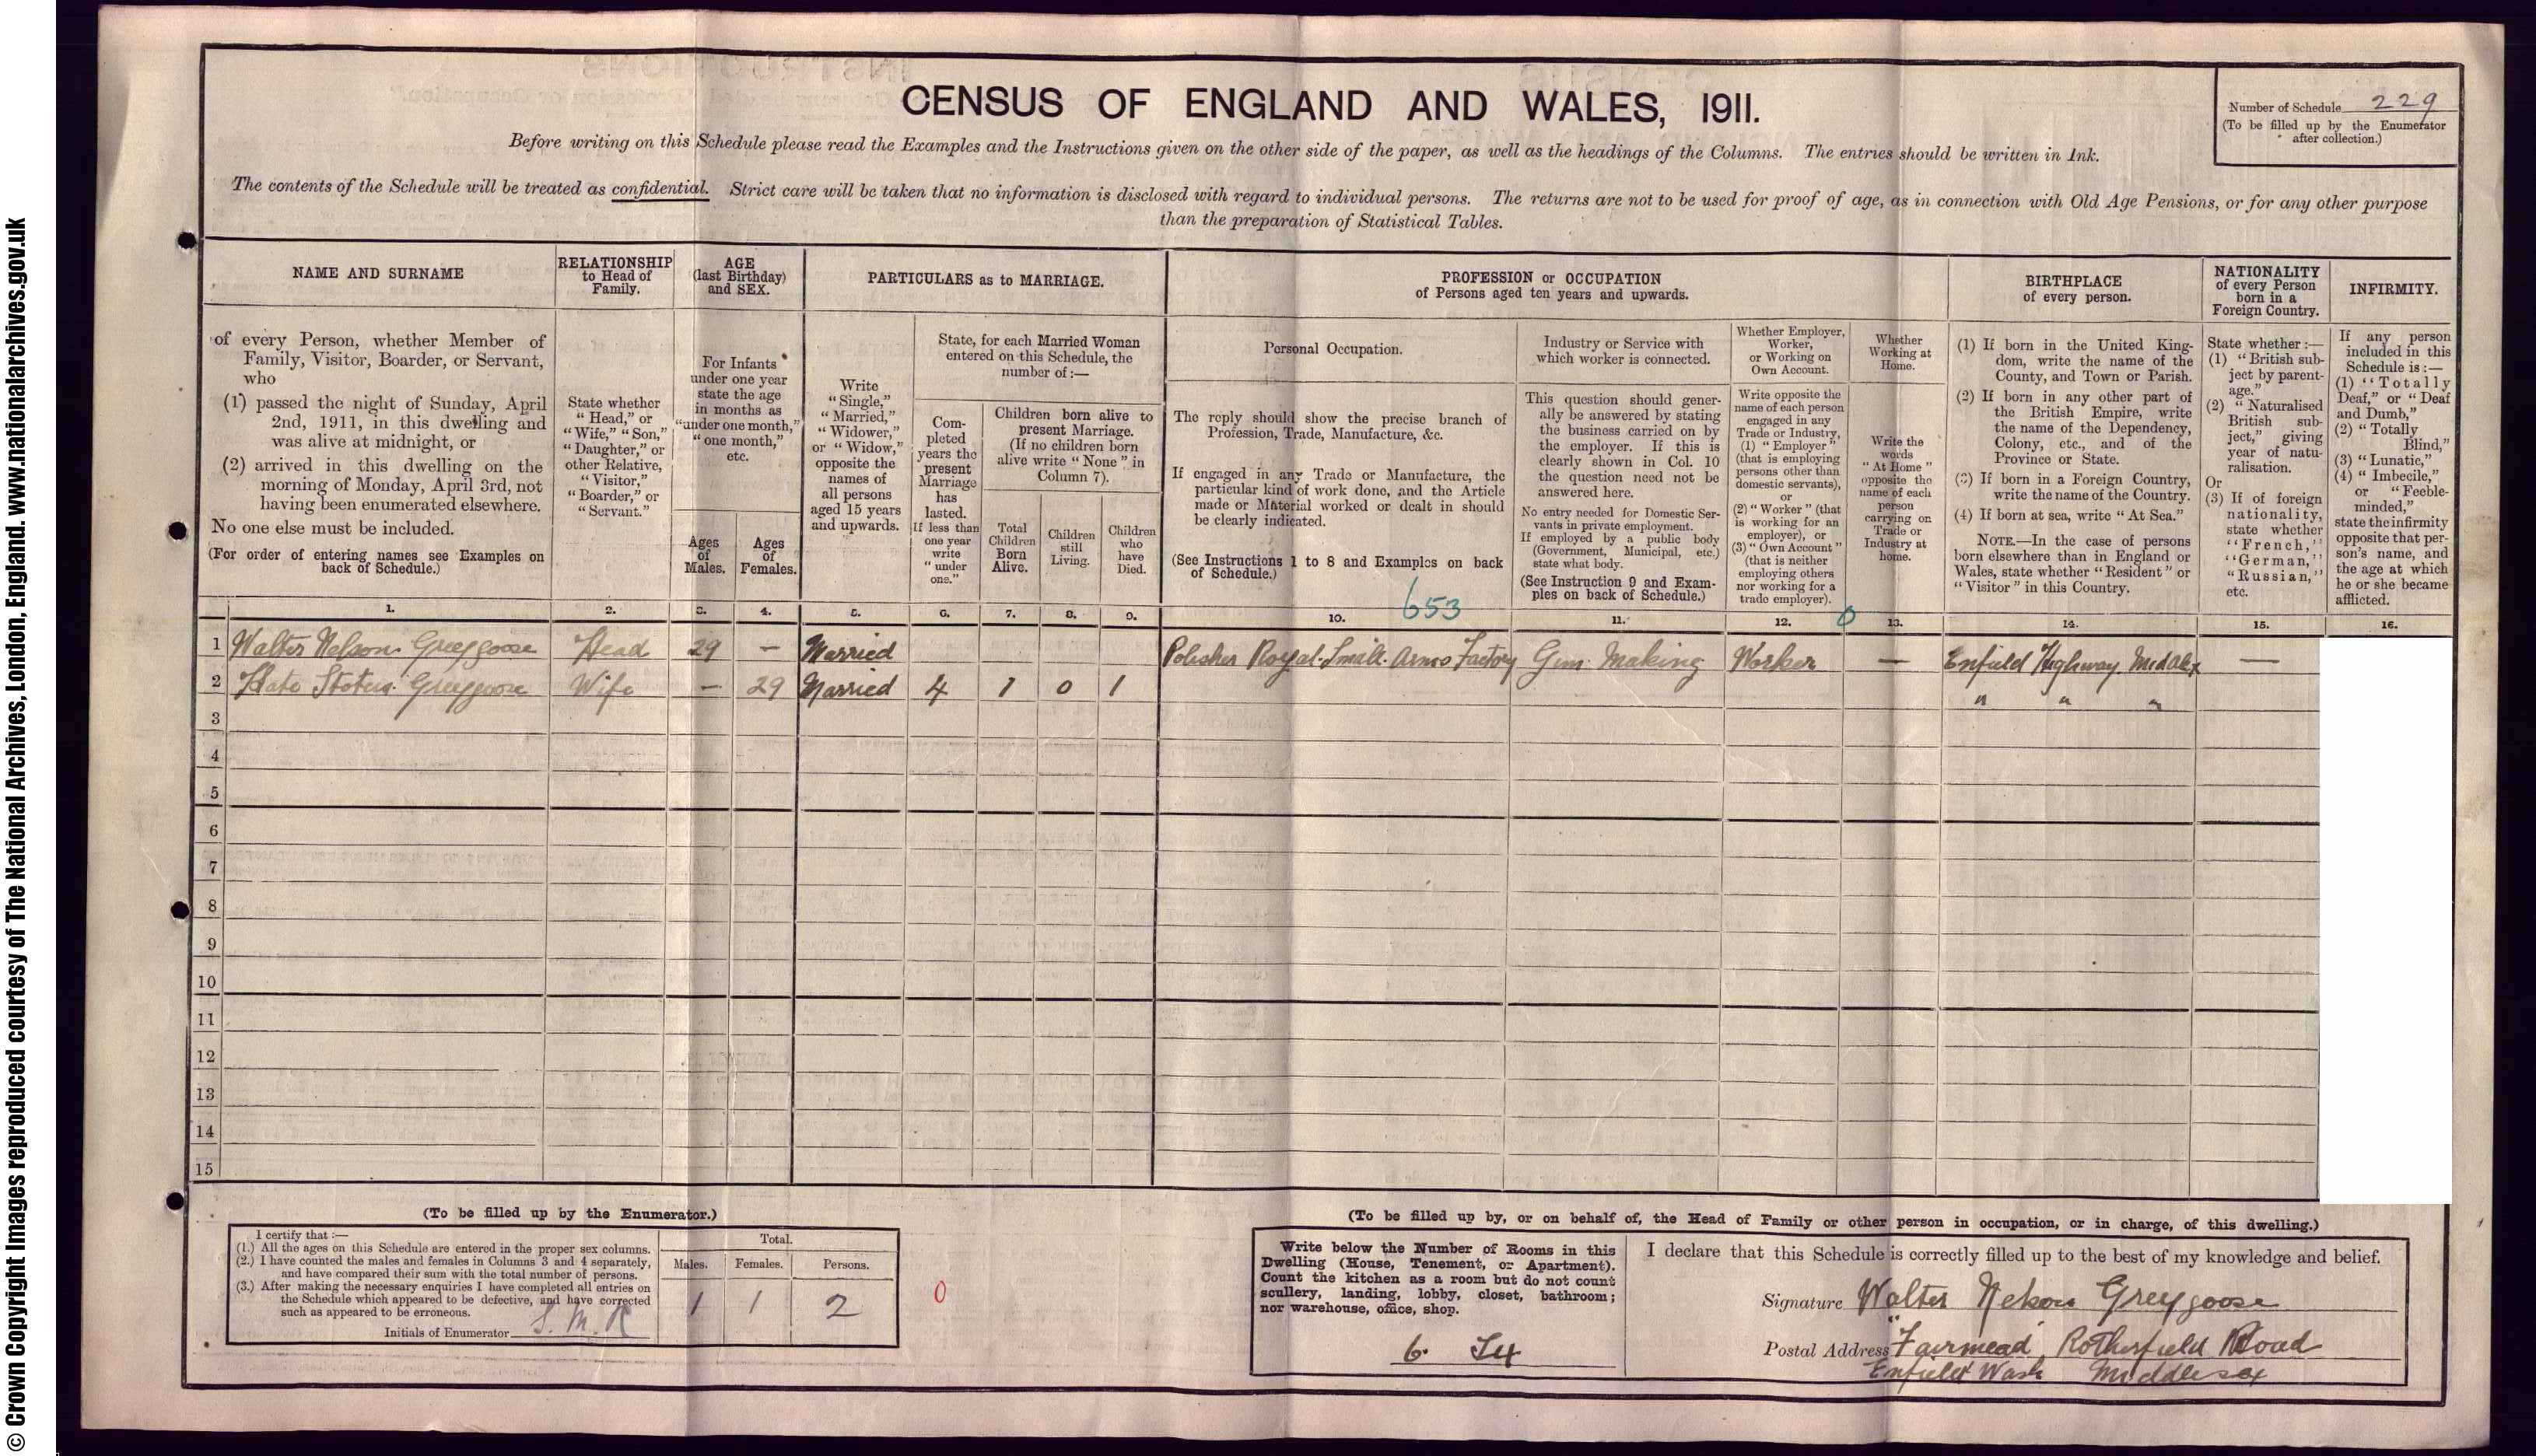 © Crown Copyright Images reproduced courtesy of The National Archives, London, England. www.nationalarchives.gov.uk
CENSUS OF ENGLAND AND WALES, 1911.
Number of Schedule 229
(To be filled up by the Enumerator
after collection.)
Before writing on this Schedule please read the Examples and the Instructions given on the other side of the paper, as well as the headings of the Columns. The entries should be written in Ink.
The contents of the Schedule will be treated as confidential. Strict care will be taken that no information is disclosed with regard to individual persons. The returns are not to be used for proof of age, as in connection with Old Age Pensions, or for any other purpose
than the preparation of Statistical Tables.
NAME AND SURNAME
of every Person, whether Member of
Family, Visitor, Boarder, or Servant,
who
(1) passed the night of Sunday, April
2nd, 1911, in this dwelling and
was alive at midnight, or
(2) arrived in this dwelling on the
morning of Monday, April 3rd, not
having been enumerated elsewhere.
No one else must be included.
(For order of entering names see Examples on
back of Schedule.)
1.
RELATIONSHIP
to Head of
Family.
State whether
"Head," or
"Wife," "Son,"
"Daughter," or
other Relative,
"Visitor,"
"Boarder," or
"Servant."
2.
AGE
(last Birthday)
and SEX.
For Infants
under one year
state the age
in months as
"under one month,"
"one month,"
etc.
Ages
of
Males.
3.
Ages
of
Females.
4.
PARTICULARS as to MARRIAGE.
Write
"Single,"
"Married,"
"Widower,"
or "Widow,"
opposite the
names of
all persons
aged 15 years
and upwards.
5.
State, for each Married Woman
entered on this Schedule, the
number of :—
Com-
pleted
years the
present
Marriage
has
lasted.
If less than
one year
write
"under
one."
6.
Children born alive to
present Marriage.
(If no children born
alive write "None" in
Column 7).
Total
Children
Born
Alive.
7.
Children
still
Living.
8.
Children
who
have
Died.
9.
PROFESSION or OCCUPATION
of Persons aged ten years and upwards.
Personal Occupation.
The reply should show the precise branch of
Profession, Trade, Manufacture, &c.
If engaged in any Trade or Manufacture, the
particular kind of work done, and the Article
made or Material worked or dealt in should
be clearly indicated.
(See Instructions 1 to 8 and Examples on back
of Schedule.)
653
10.
Industry or Service with
which worker is connected.
This question should gener-
ally be answered by stating
the business carried on by
the employer. If this is
clearly shown in Col. 10
the question need not be
answered here.
No entry needed for Domestic Ser-
vants in private employment.
If employed by a public body
(Government, Municipal, etc.)
state what body.
(See Instruction 9 and Exam-
ples on back of Schedule.)
11.
Whether Employer,
Worker,
or Working on
Own Account.
Write opposite the
name of each person
engaged in any
Trade or Industry,
(1) "Employer"
(that is employing
persons other than
domestic servants),
or
(2) "Worker" (that
is working for an
employer), or
(3) "Own Account"
(that is neither
employing others
nor working for a
trade employer).
12.
0
Whether
Working at
Home.
Write the
words
"At Home"
opposite the
name of each
person
carrying on
Trade or
Industry at
home.
13.
BIRTHPLACE
of every person.
(1) If born in the United King-
dom, write the name of the
County, and Town or Parish.
(2) If born in any other part of
the British Empire, write
the name of the Dependency,
Colony, etc., and of the
Province or State.
(3) If born in a Foreign Country,
write the name of the Country.
(4) If born at sea, write "At Sea."
NOTE.—In the case of persons
born elsewhere than in England or
Wales, state whether "Resident" or
"Visitor" in this Country.
14.
NATIONALITY
of every Person
born in a
Foreign Country.
State whether :—
(1) "British sub-
ject by parent-
age."
(2) "Naturalised
British sub-
ject," giving
year of natu-
ralisation.
Or
(3) If of foreign
nationality,
state whether
"French,"
"German,"
"Russian,"
etc.
15.
INFIRMITY.
If any person
included in this
Schedule is :—
(1) "Totally
Deaf," or "Deaf
and Dumb,"
(2) "Totally
Blind,"
(3) "Lunatic,"
(4) "Imbecile,"
or "Feeble-
minded,"
state the infirmity
opposite that per-
son's name, and
the age at which
he or she became
afflicted.
16.
1 Walter Nelson Greygoose Head 29 — Married Polisher Royal Small Arms Factory Gun Making Worker — Enfield Highway Middlx —
2 Kate Greygoose Wife — 29 Married 4 1 0 1 " " "
3
4
5
6
7
8
9
10
11
12
13
14
15
(To be filled up by the Enumerator.)
I certify that :—
(1.) All the ages on this Schedule are entered in the proper sex columns.
(2.) I have counted the males and females in Columns 3 and 4 separately,
and have compared their sum with the total number of persons.
(3.) After making the necessary enquiries I have completed all entries on
the Schedule which appeared to be defective, and have corrected
such as appeared to be erroneous.
Initials of Enumerator S. M. R
Total.
Males. Females. Persons.
1 1 2
0
(To be filled up by, or on behalf of, the Head of Family or other person in occupation, or in charge, of this dwelling.)
Write below the Number of Rooms in this
Dwelling (House, Tenement, or Apartment).
Count the kitchen as a room but do not count
scullery, landing, lobby, closet, bathroom;
nor warehouse, office, shop.
6.
I declare that this Schedule is correctly filled up to the best of my knowledge and belief.
Signature Walter Nelson Greygoose
Postal Address "Fairmead" Rotherfield Road
Enfield Wash Middlesex